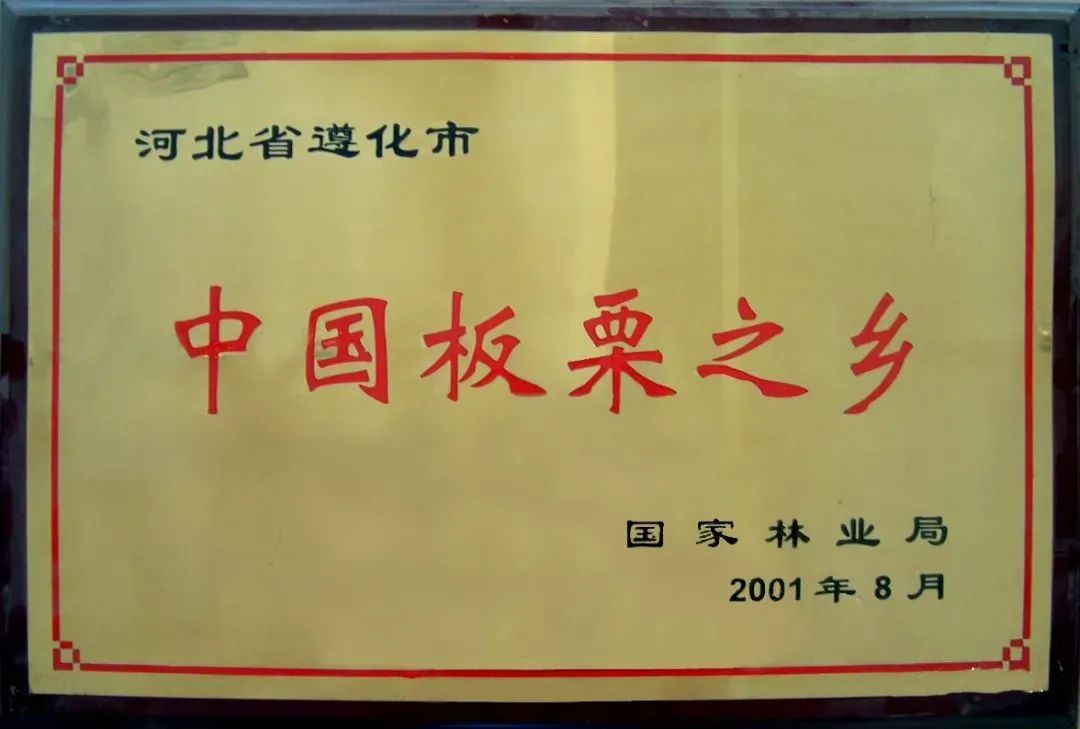 河北省遵化市
中国板栗之乡
国家林业局
2001年8月